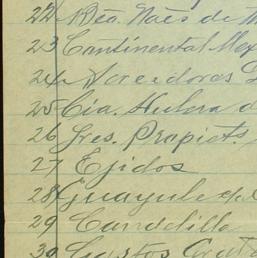 22 Bco. Naes de M
23 Continental Mex
24 Acreedores D
25 Cia. Hulera d
26 Sres. Propiets.
27 Ejidos
28 Guayule
29 Candelilla
30 Gastos Grat